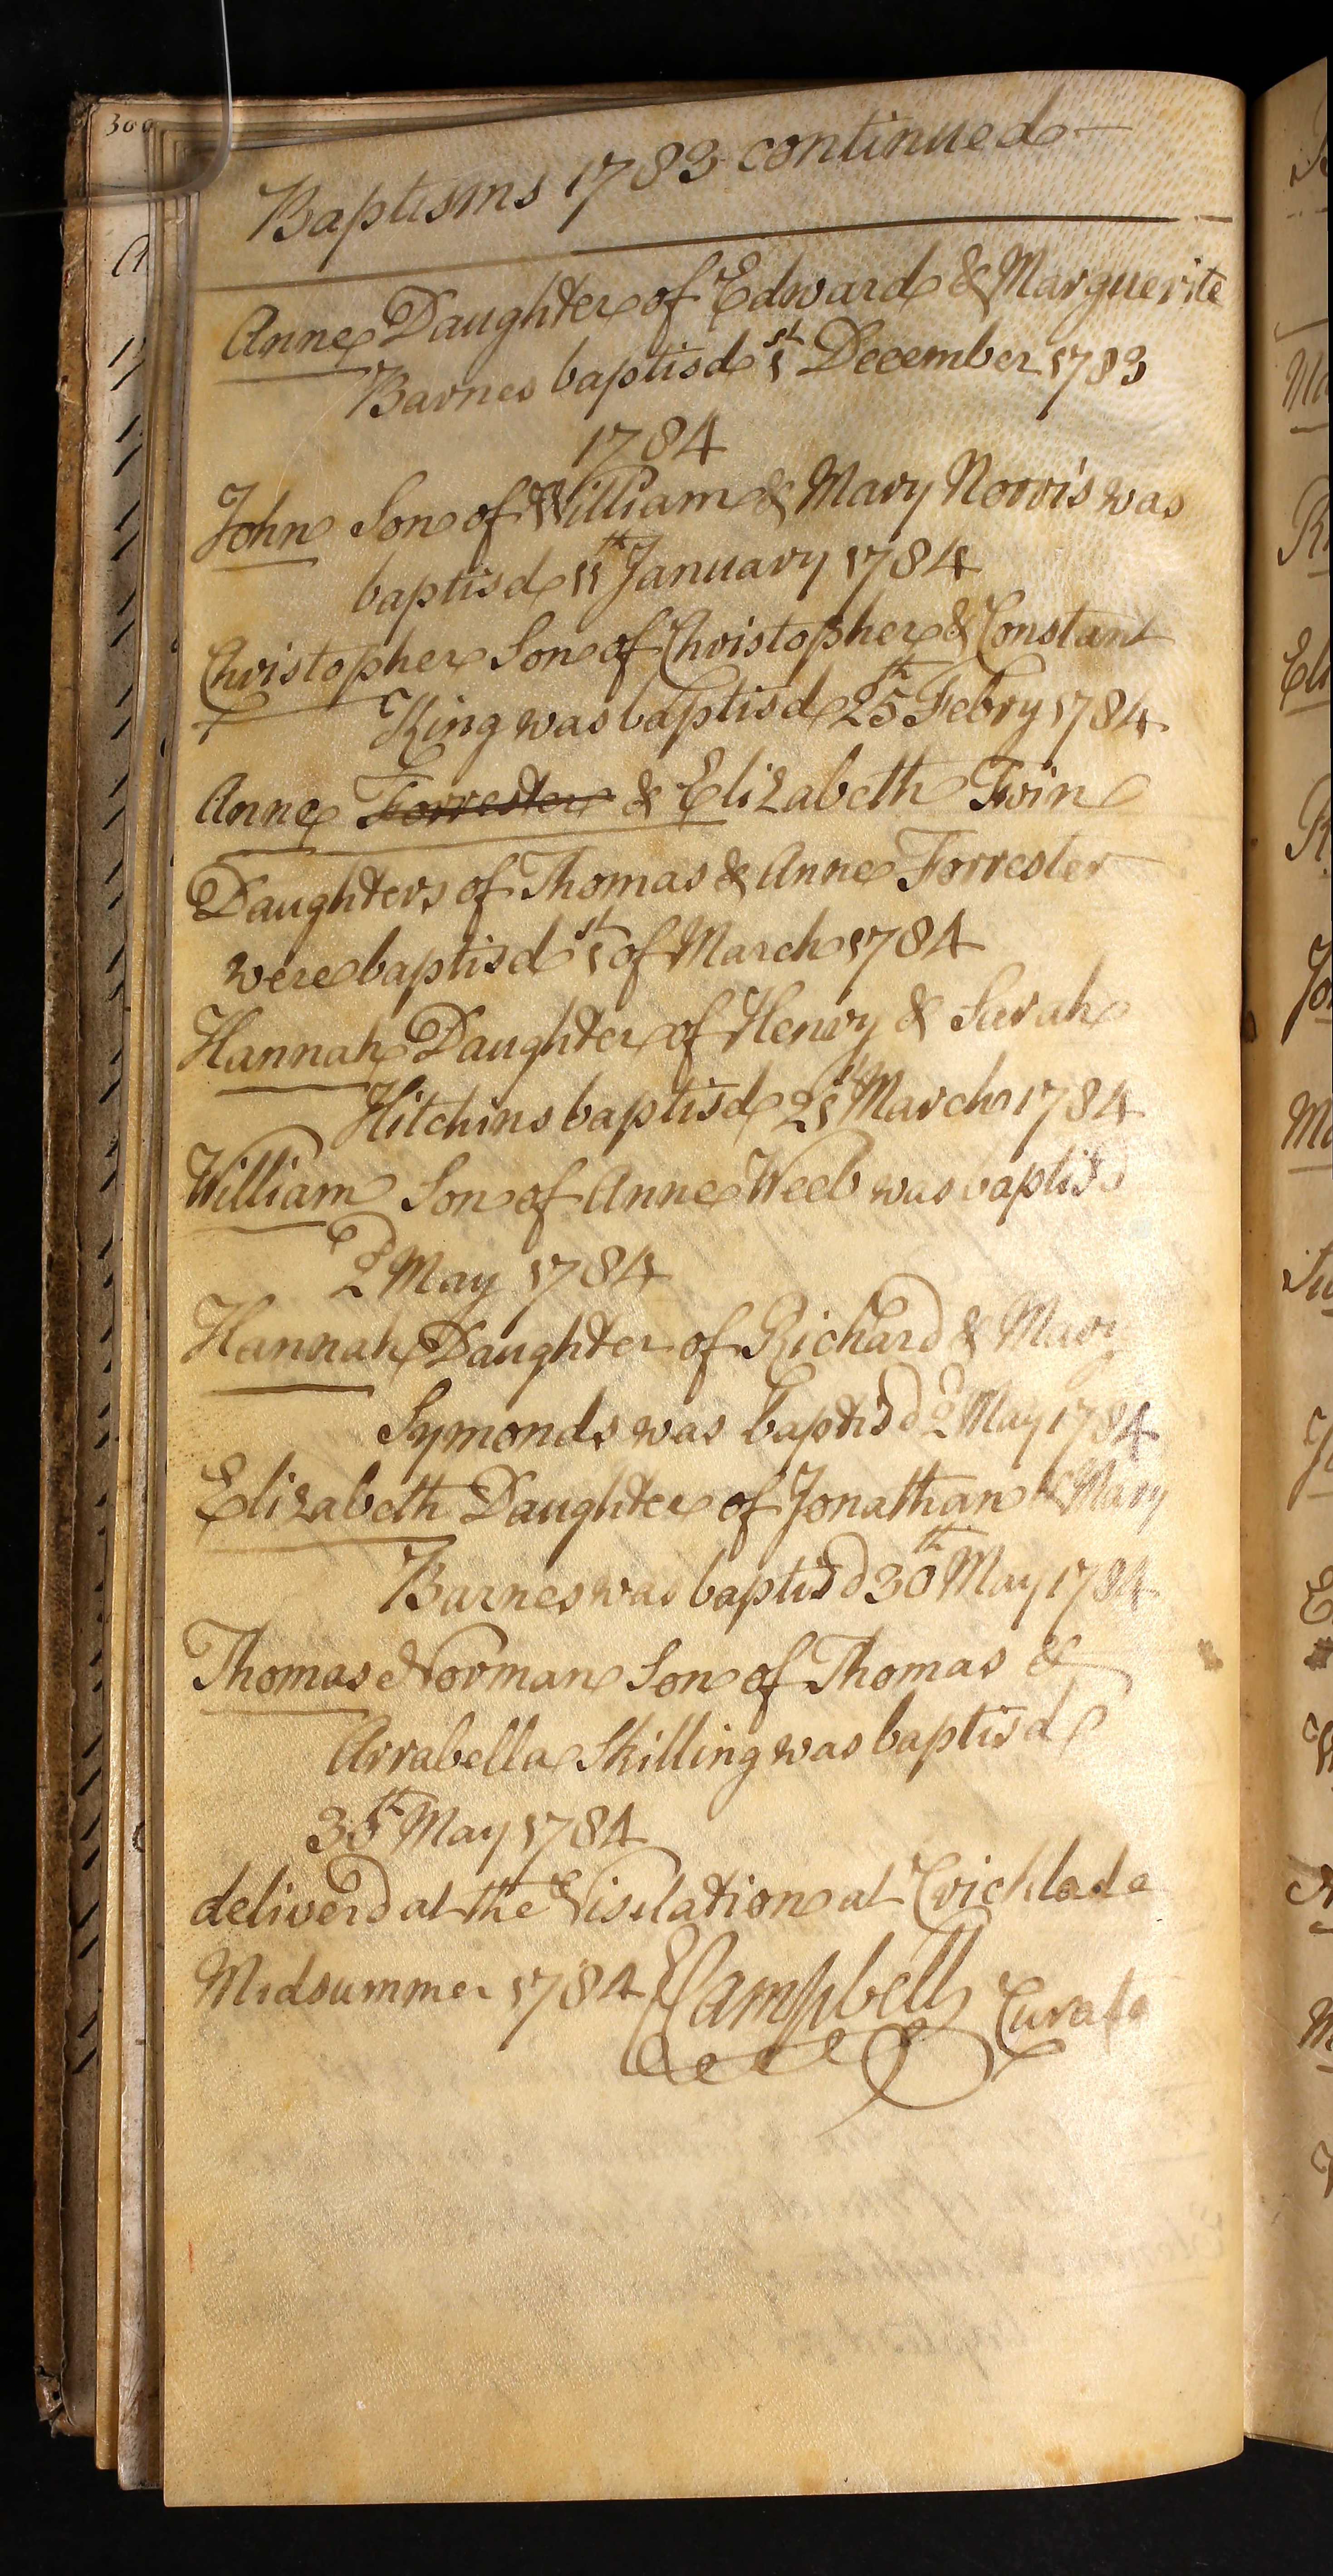 Baptisms 1783 continued
Anne Daughter of Edward & Marguerite
Barnes baptisd 1st December 1783
1784
John Son of William & Mary Norris was
baptisd 11th January 1784
Christopher Son of Christopher & Constant
King was baptisd 25th Febry 1784
Anne Forrester & Elizabeth Twin
Daughters of Thomas & Anne Forrester
were baptisd 1st of March 1784
Hannah Daughter of Henry & Sarah
Hitchins baptisd 21st March 1784
William Son of Anne Weeb was baptisd
2d May 1784
Hannah Daughter of Richard & Mary
Symonds was baptisd 2d May 1784
Elizabeth Daughter of Jonathan & Mary
Barnes was baptisd 30th May 1784
Thomas Norman Son of Thomas &
Arrabella Skilling was baptisd
30th May 1784
deliverd at the Visitation at Cricklade
Midsummer 1784 Campbell Curate